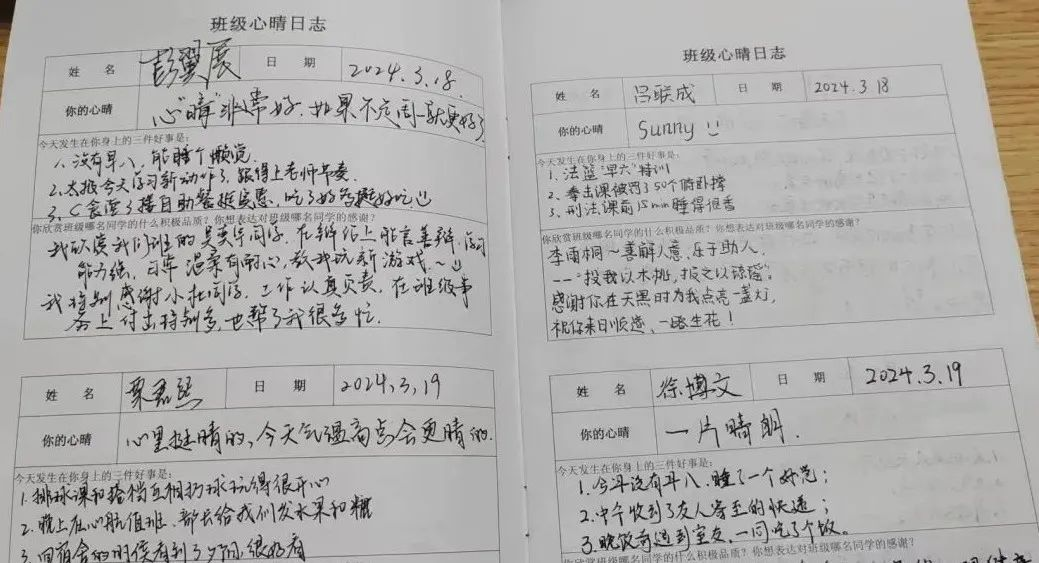 班级心晴日志
姓 名 彭翼展 日 期 2024.3.18.
你的心晴 心"晴"非常好.如果不是周一就更好了
今天发生在你身上的三件好事是:
1、没有早八,能睡个懒觉.
2.太极今天学习新动作了,跟得上老师节奏.
3、C食堂3楼自助餐挺实惠,吃了好多挺好吃
你欣赏班级哪名同学的什么积极品质?你想表达对班级哪名同学的感谢?
我欣赏我们班的吴奕华同学.在辩论上能言善辩.学习
能力强,司库温柔有耐心,教我玩新游戏~
我特别感谢小杜同学.工作认真负责,在班级事
务上付出特别多,也帮了我很多忙.
姓 名 日 期 2024,3,19
你的心晴 心里挺晴的,今天气温高点会更晴的.
今天发生在你身上的三件好事是:
1.排球课和搭档互相扔球玩得很开心
2.晚上在心航值班.部长给我们发水果和糖
3.回宿舍的时候看到了夕阳,很好看
班级心晴日志
姓 名 吕联成 日 期 2024.3 18
你的心晴 Sunny
今天发生在你身上的三件好事是:
1.法篮"早六"特训
2、拳击课被罚了50个俯卧撑
3、刑法课前15min睡得很香
你欣赏班级哪名同学的什么积极品质?你想表达对班级哪名同学的感谢?
李雨桐~善解人意,乐于助人.
——"投我以木桃,报之以琼瑶".
感谢你在天黑时为我点亮一盏灯,
祝你来日顺遂、一路生花!
姓 名 徐博文 日 期 2024.3.19
你的心晴 一片晴朗.
今天发生在你身上的三件好事是:
1.今年没有早八.睡了一个好觉;
2.中午收到了友人寄至的快递;
3.晚饭前遇到室友,一同吃了个饭。
你欣赏班级哪名同学的什么积极品质?你想表达对班级哪名同学的感谢?